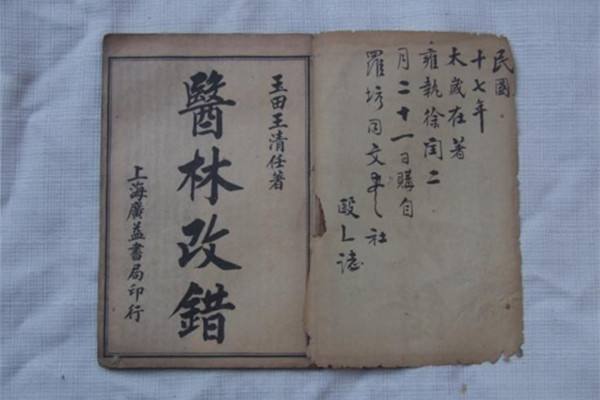 民國
十七年
太歲在著
雍執徐閏二
月二十一日購自
羅坊同文社
誌
玉田王清任著
醫林改錯
上海廣益書局印行